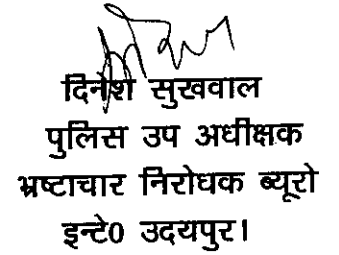 दिनेश सुखवाल
पुलिस उप अधीक्षक
भ्रष्टाचार निरोधक ब्यूरो
इन्टे0 उदयपुर।